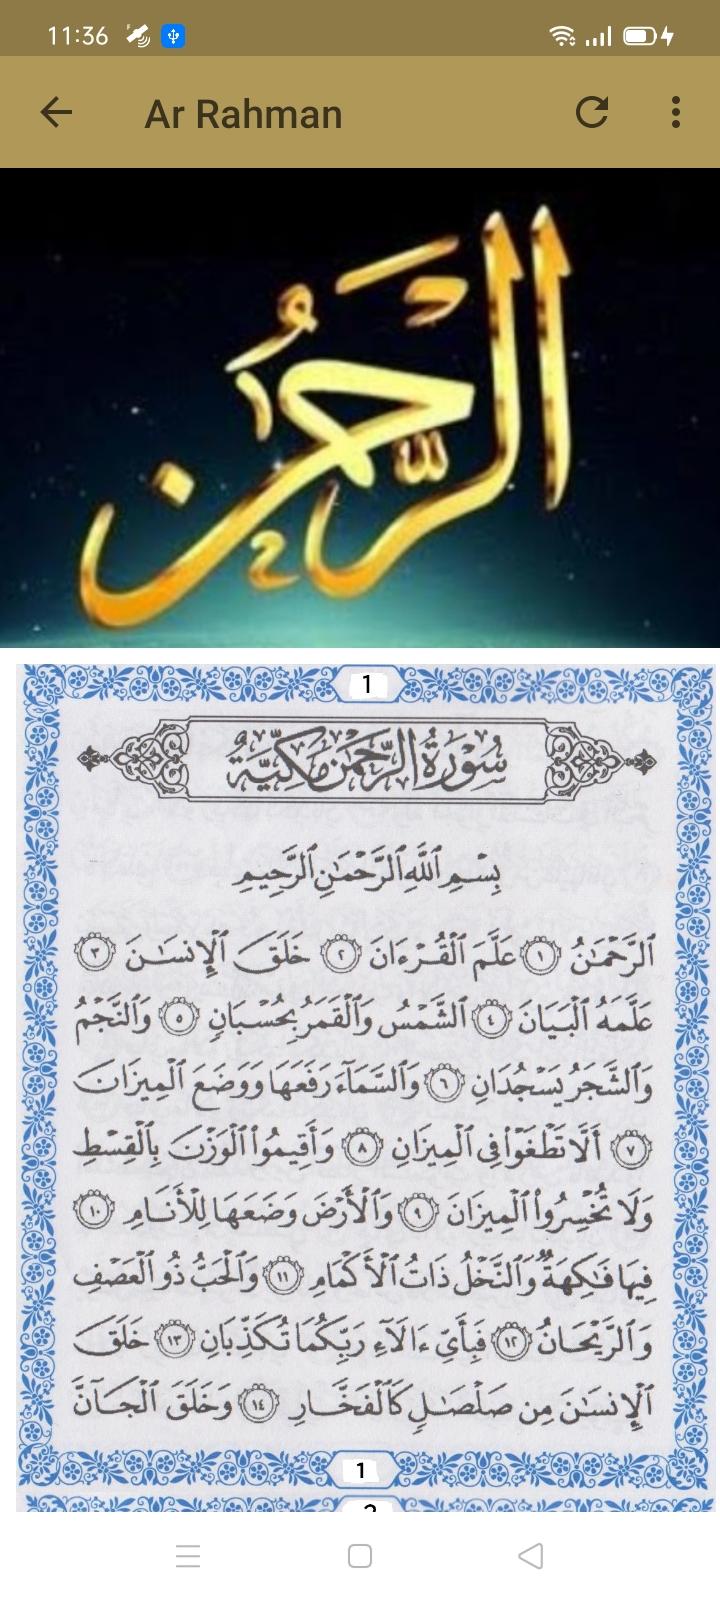 11:36
Ar Rahman
الرَّحْمٰنُ
1
سُورَةُ الرَّحْمٰن مَكِّيَّةٌ
بِسْمِ ٱللَّهِ ٱلرَّحْمَٰنِ ٱلرَّحِيمِ
ٱلرَّحْمَٰنُ ١ عَلَّمَ ٱلْقُرْءَانَ ٢ خَلَقَ ٱلْإِنسَٰنَ ٣
عَلَّمَهُ ٱلْبَيَانَ ٤ ٱلشَّمْسُ وَٱلْقَمَرُ بِحُسْبَانٍ ٥ وَٱلنَّجْمُ
وَٱلشَّجَرُ يَسْجُدَانِ ٦ وَٱلسَّمَآءَ رَفَعَهَا وَوَضَعَ ٱلْمِيزَانَ
٧ أَلَّا تَطْغَوْا۟ فِى ٱلْمِيزَانِ ٨ وَأَقِيمُوا۟ ٱلْوَزْنَ بِٱلْقِسْطِ
وَلَا تُخْسِرُوا۟ ٱلْمِيزَانَ ٩ وَٱلْأَرْضَ وَضَعَهَا لِلْأَنَامِ ١٠
فِيهَا فَٰكِهَةٌ وَٱلنَّخْلُ ذَاتُ ٱلْأَكْمَامِ ١١ وَٱلْحَبُّ ذُو ٱلْعَصْفِ
وَٱلرَّيْحَانُ ١٢ فَبِأَىِّ ءَالَآءِ رَبِّكُمَا تُكَذِّبَانِ ١٣ خَلَقَ
ٱلْإِنسَٰنَ مِن صَلْصَٰلٍ كَٱلْفَخَّارِ ١٤ وَخَلَقَ ٱلْجَآنَّ
1